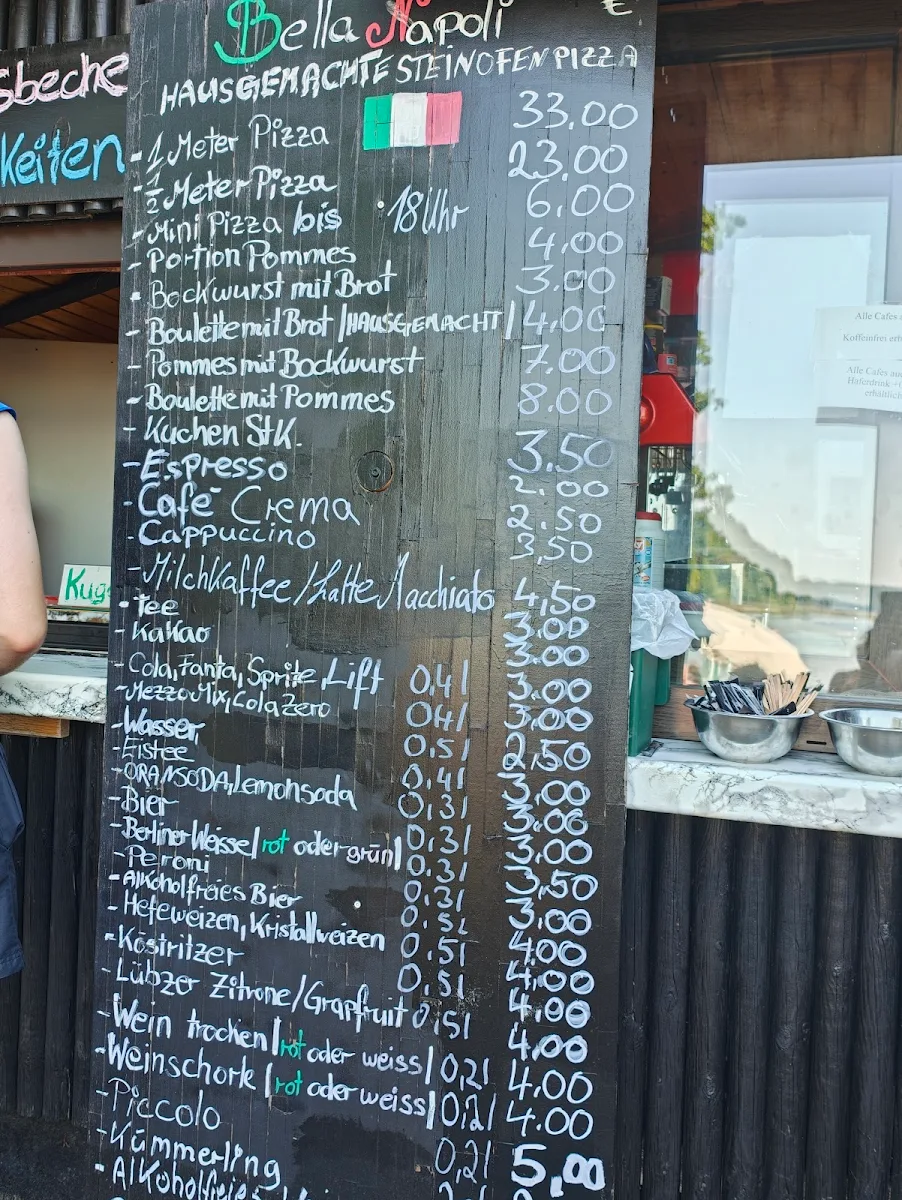 Bella Napoli €
HAUSGEMACHTE STEINOFENPIZZA
- 1 Meter Pizza 33,00
- 1/2 Meter Pizza 23,00
- Mini Pizza bis 18 Uhr 6,00
- Portion Pommes 4,00
- Bockwurst mit Brot 3,00
- Boulette mit Brot |HAUSGEMACHT| 4,00
- Pommes mit Bockwurst 7,00
- Boulette mit Pommes 8,00
- Kuchen Stk. 3,50
- Espresso 2,00
- Café Crema 2,50
- Cappuccino 3,50
- Milchkaffee/Latte Macchiato 4,50
- Tee 3,00
- Kakao 3,00
- Cola, Fanta, Sprite, Lift 0,4l 3,00
- MezzoMix, Cola Zero 0,4l 3,00
- Wasser 0,5l 2,50
- Eistee 0,4l 3,00
- ORANSODA, Lemonsoda 0,3l 3,00
- Bier 0,3l 3,00
- Berliner Weisse |rot oder grün| 0,3l 3,50
- Peroni 0,3l 3,00
- Alkoholfreies Bier 0,5l 4,00
- Hefeweizen, Kristallweizen 0,5l 4,00
- Köstritzer 0,5l 4,00
- Lübzer Zitrone/Grapfruit 0,5l 4,00
- Wein trocken |rot oder weiss| 0,2l 4,00
- Weinschorle |rot oder weiss| 0,2l 4.00
- Piccolo 0,2l 5,00
- Kümmerling
- Alkoholfreies
sbeche
Keiten
Kug
Alle Cafes
Koffeinfrei
Alle Cafes
Haferdrink
erhältlich